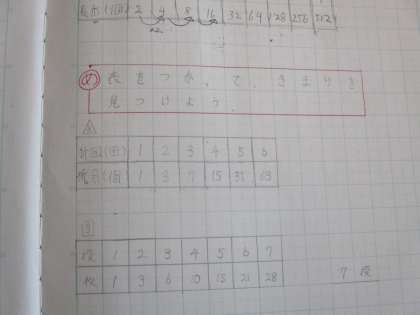 2 4 8 16 32 64 128 256 512
×2
め 表をつかって、きまりを
見つけよう。
1 2 3 4 5 6
1 3 7 15 31 63
段 1 2 3 4 5 6 7
枚 1 3 6 10 15 21 28
7段